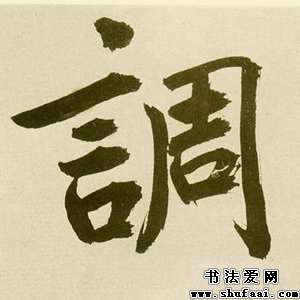 調
书法爱网
www.shufaai.com